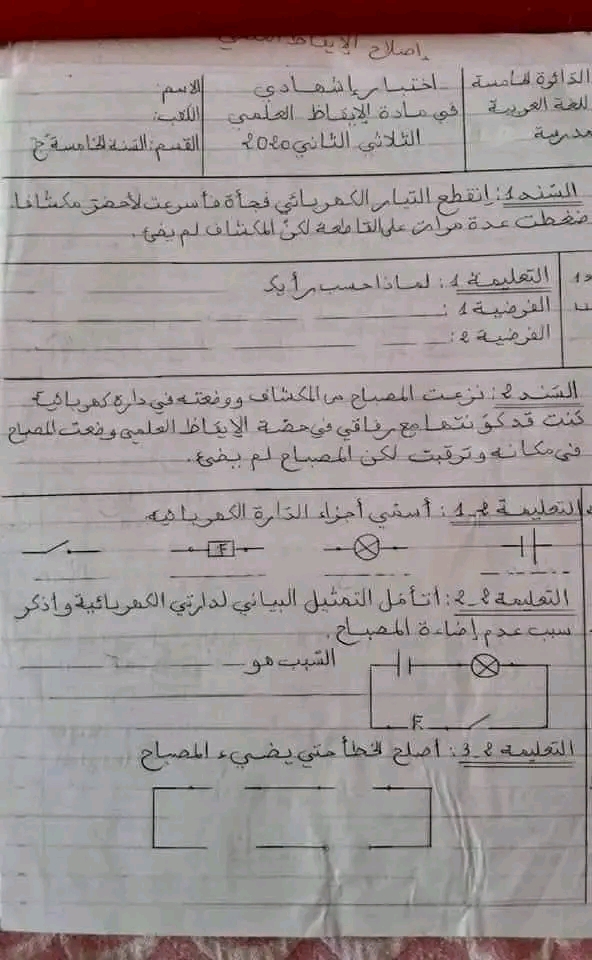 إصلاح الإيقاظ العلمي
الدائرة الخامسة
للغة العربية
مدرسة
اختبار إشهادي
في مادة الإيقاظ العلمي
الثلاثي الثاني 2020
الاسم:
اللقب:
القسم: السنة الخامسة ج
السّند 1: إنقطع التيار الكهربائي فجأة فأسرعت لأحضر مكشافا.
ضغطت عدة مرات على القاطعة لكنّ المكشاف لم يضئ.
التعليمة 1: لماذا حسب رأيك
الفرضية 1:
الفرضية 2:
السّند 2: نزعت المصباح من المكشاف ووضعته في دارة كهربائية
كنت قد كوّنتها مع رفاقي في حصة الإيقاظ العلمي وضعت المصباح
في مكانه وترقبت لكن المصباح لم يضئ.
التعليمة 2_1: أسمّي أجزاء الدّارة الكهربائية
F
التعليمة 2_2: أتأمّل التمثيل البياني لدارتي الكهربائية وأذكر
سبب عدم إضاءة المصباح.
السّبب هو
F
التعليمة 2_3: أصلح الخطأ حتي يضيء المصباح